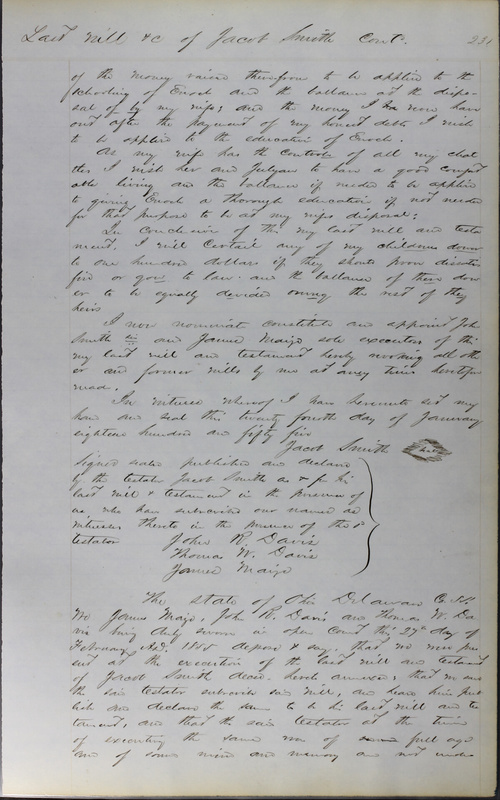 Last will &c of Jacob Smith Con't. 231
of the money raised therefrom to be applied to the
schooling of Enoch and the ballance at the dispo-
sal of by my wife; and the money I now have
out after the payment of my honest debts I wish
to be applied to the education of Enoch.
As my wife has the control of all my chat
tles I wish her and to have a good comfort
able living and the ballance if needed to be applied
to giving Enoch a thorough education if not needed
for that purpose to be at my wifes disposal;
In conclusion of this my last will and testa
ment. I will Certain any of my childrens dower
to one hundred dollars if they should prove dissatis
fied or go to law and the ballance of their dow
er to be equally devided among the rest of they
heirs
I now nominate constitute and appoint John
Smith and James Maize sole executors of this
my last will and testament hereby revoking all oth
er and former wills by me at aney time heretofore
made.
In witness whereof I have hereunto set my
hand and seal this twenty fourth day of January
eighteen hundred and fifty five
Jacob Smith seal
Signed sealed published and declared
by the testator Jacob Smith as & for his
last will & testament in the presence of
us, who have subscribed our names as
witnesses thereto in the presence of the sd
testator John R. Davis
Thomas W. Davis
James Maize
The state of Ohio Delaware Co. SS.
We James Maize, John R. Davis and Thomas W. Da
vis being duly sworn in open Court this 27th day of
February A.D. 1855 depose & say, that we were pre
sent at the execution of the last will and testament
of Jacob Smith decd. hereto annexed; that we saw
the said testator subscribe said will, and heard him pub
lish and declare the same to be his last will and tes
tament, and that the said testator at the time
of executing the same was of full age
and of sound mind and memory and not under